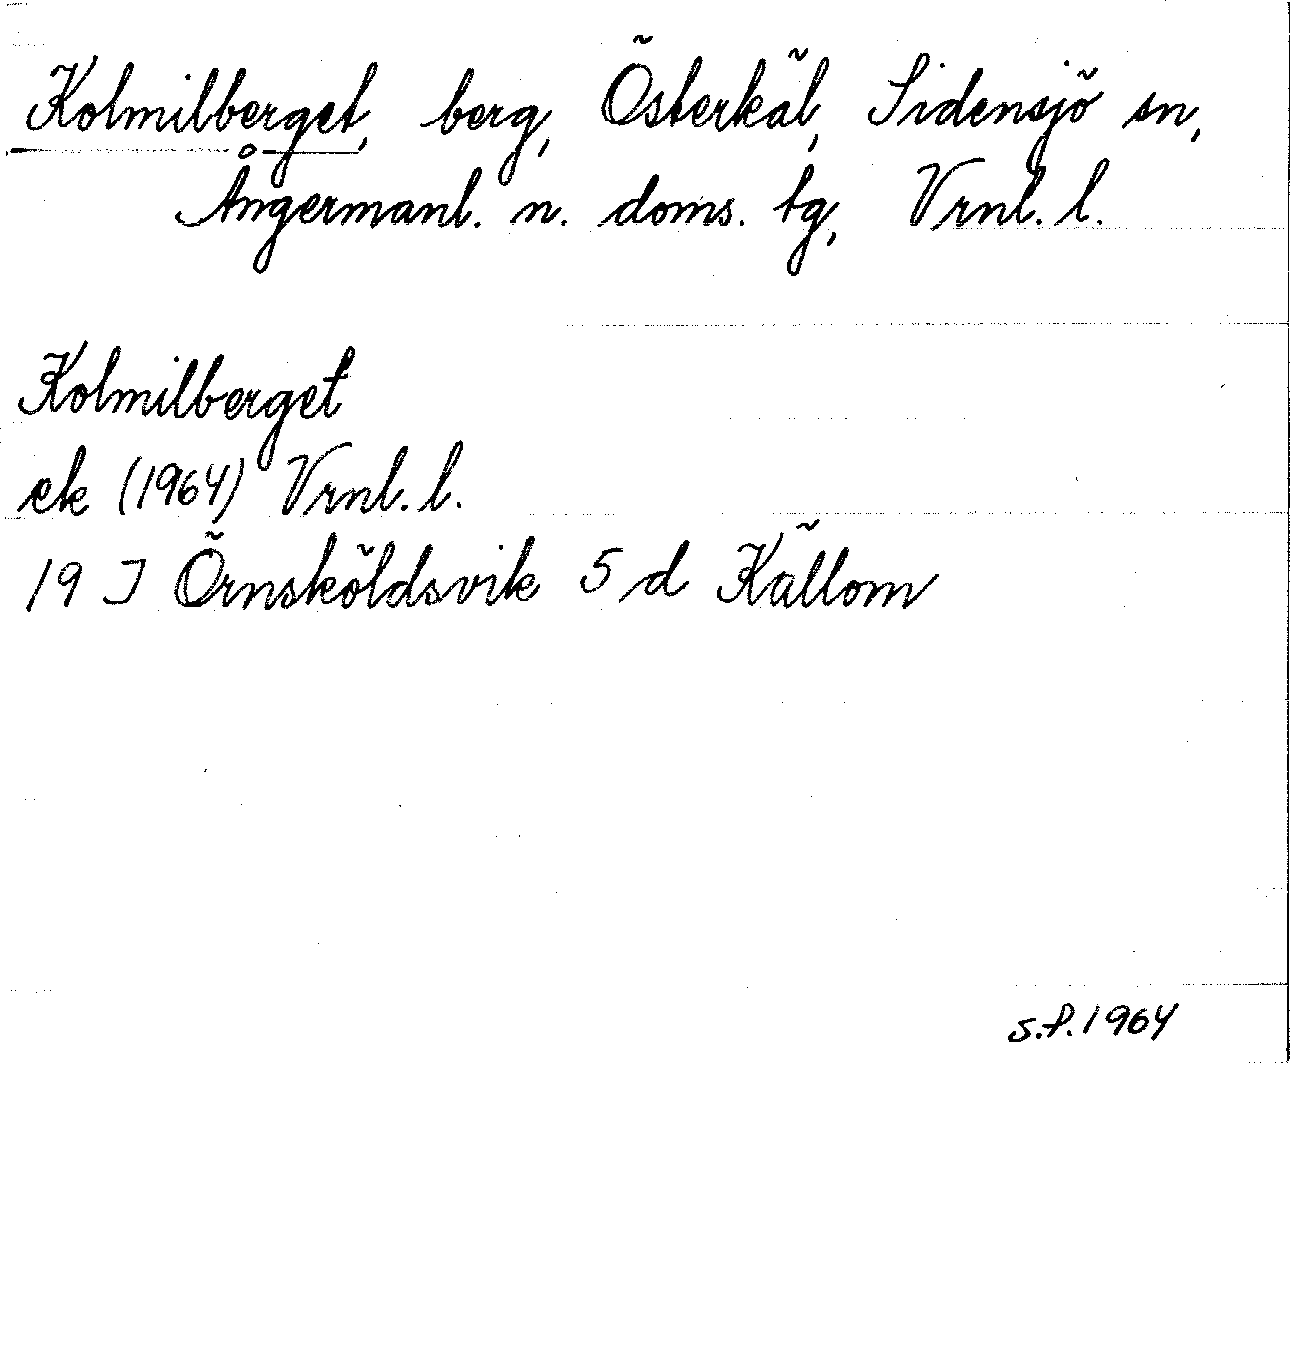 Kolmilberget, berg, Österkäl, Sidensjö sn,
Ångermanl. n. doms. tg, Vrnl. l.
Kolmilberget
ek (1964) Vrnl. l.
19 J Örnsköldsvik 5 d Källom
s.f. 1964